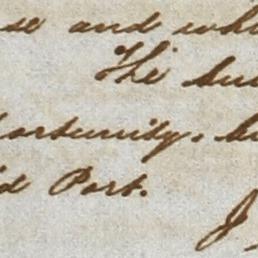 se and wh
The su
portunity, b
id Port.
J